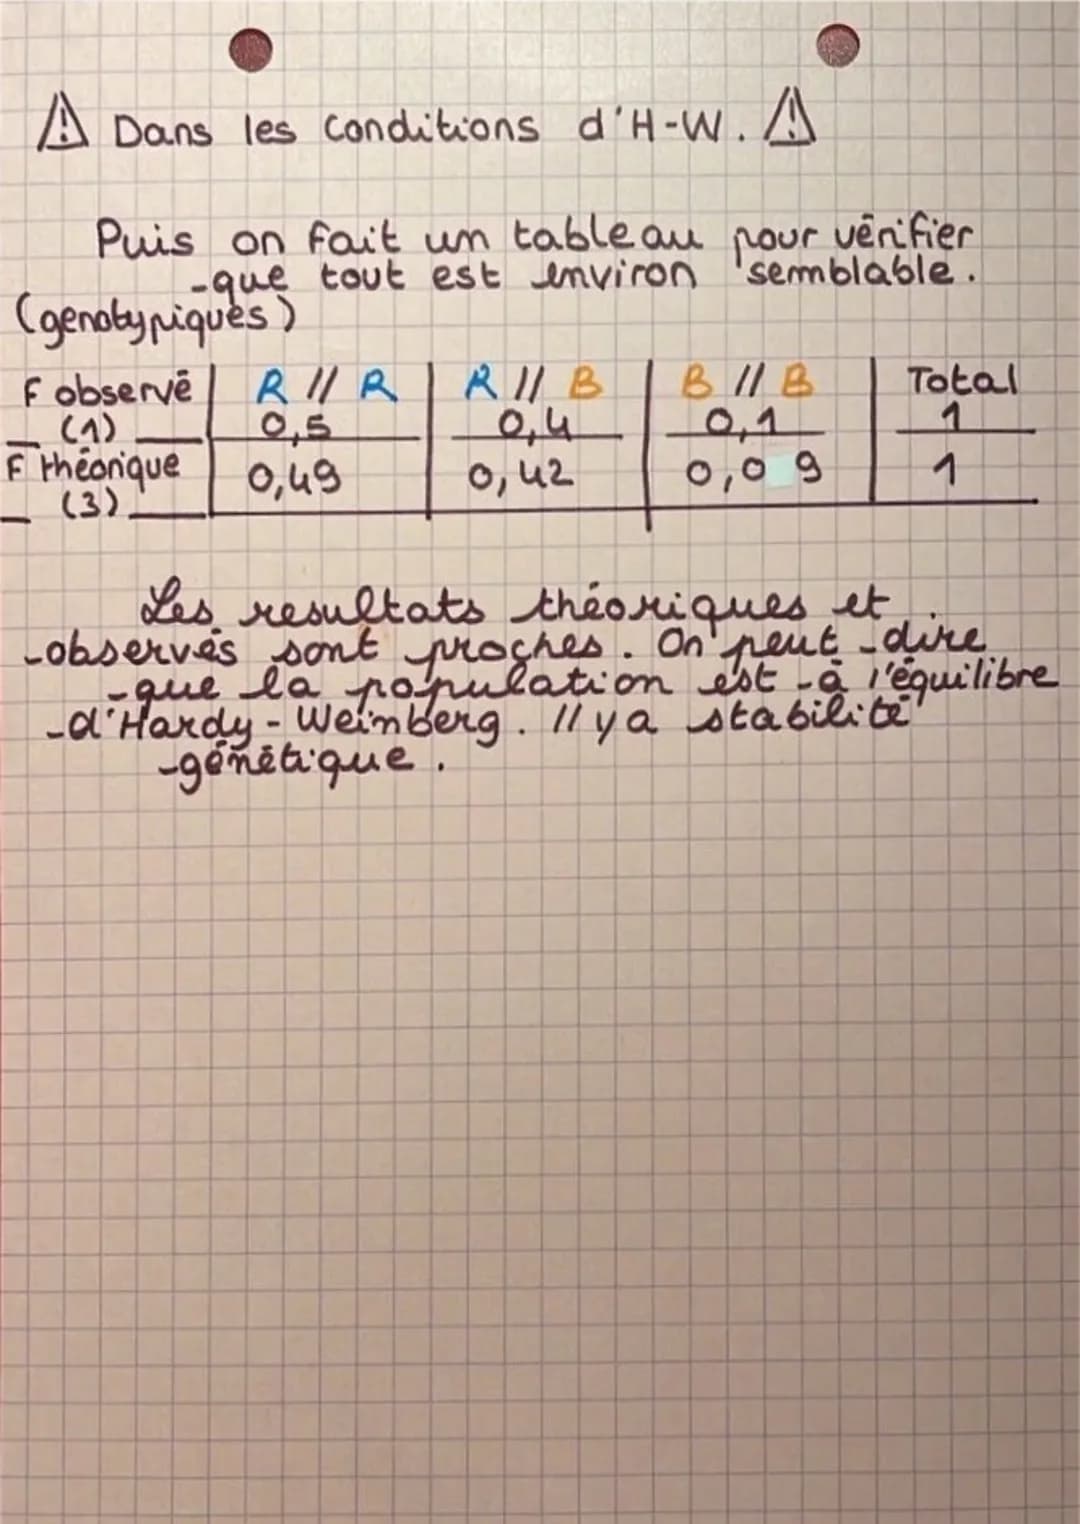 ⚠ Dans les conditions d'H-W. ⚠
Puis on fait un tableau pour vérifier
que tout est environ semblable.
(genotypiques)
F observé (1) | R // R 0,5 | R // B 0,4 | B // B 0,1 | Total 1
F théorique (3) | 0,49 | 0,42 | 0,09 | 1
Les resultats théoriques et
observés sont proches. On peut dire
que la population est à l'équilibre
d'Hardy-Weinberg. Il y a stabilité
génétique.